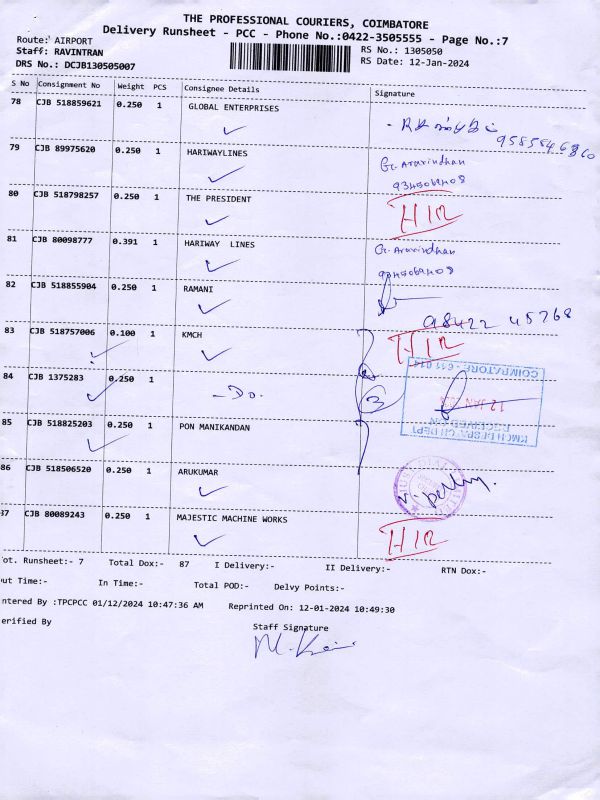 THE PROFESSIONAL COURIERS, COIMBATORE
Delivery Runsheet - PCC - Phone No.:0422-3505555 - Page No.:7
Route: AIRPORT
Staff: RAVINTRAN
DRS No.: DCJB130505007
RS No.: 1305050
RS Date: 12-Jan-2024
S No Consignment No Weight PCS Consignee Details Signature
78 CJB 518859621 0.250 1 GLOBAL ENTERPRISES
79 CJB 89975620 0.250 1 HARIWAYLINES Gc. Aravindhan
80 CJB 518798257 0.250 1 THE PRESIDENT
81 CJB 80098777 0.391 1 HARIWAY LINES Gc. Aravindhan
82 CJB 518855904 0.250 1 RAMANI
98422 45768
83 CJB 518757006 0.100 1 KMCH
84 CJB 1375283 0.250 1 - Do. 3
COIMBATORE - 641 014
12 JAN 2024
RECEIVED ON
KMCH DESPATCH DEPT
85 CJB 518825203 0.250 1 PON MANIKANDAN
86 CJB 518506520 0.250 1 ARUKUMAR
37 CJB 80089243 0.250 1 MAJESTIC MACHINE WORKS
ot. Runsheet:- 7 Total Dox:- 87 I Delivery:- II Delivery:- RTN Dox:-
out Time:- In Time:- Total POD:- Delvy Points:-
ntered By :TPCPCC 01/12/2024 10:47:36 AM Reprinted On: 12-01-2024 10:49:30
erified By Staff Signature